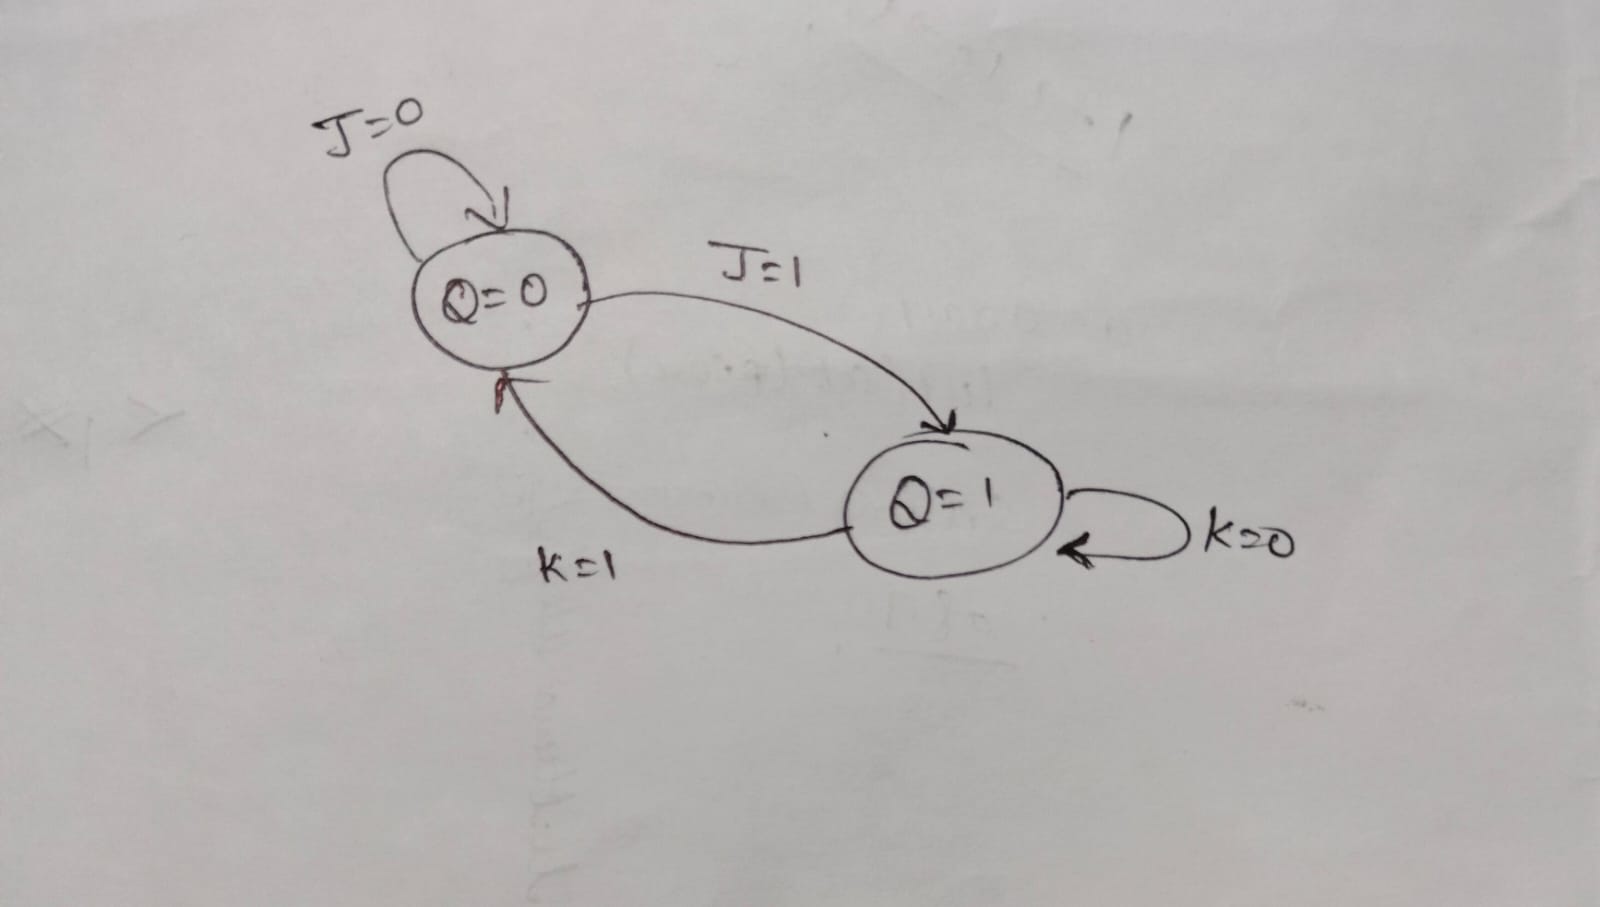 J=0
Q=0
J=1
Q=1
K=0
K=1